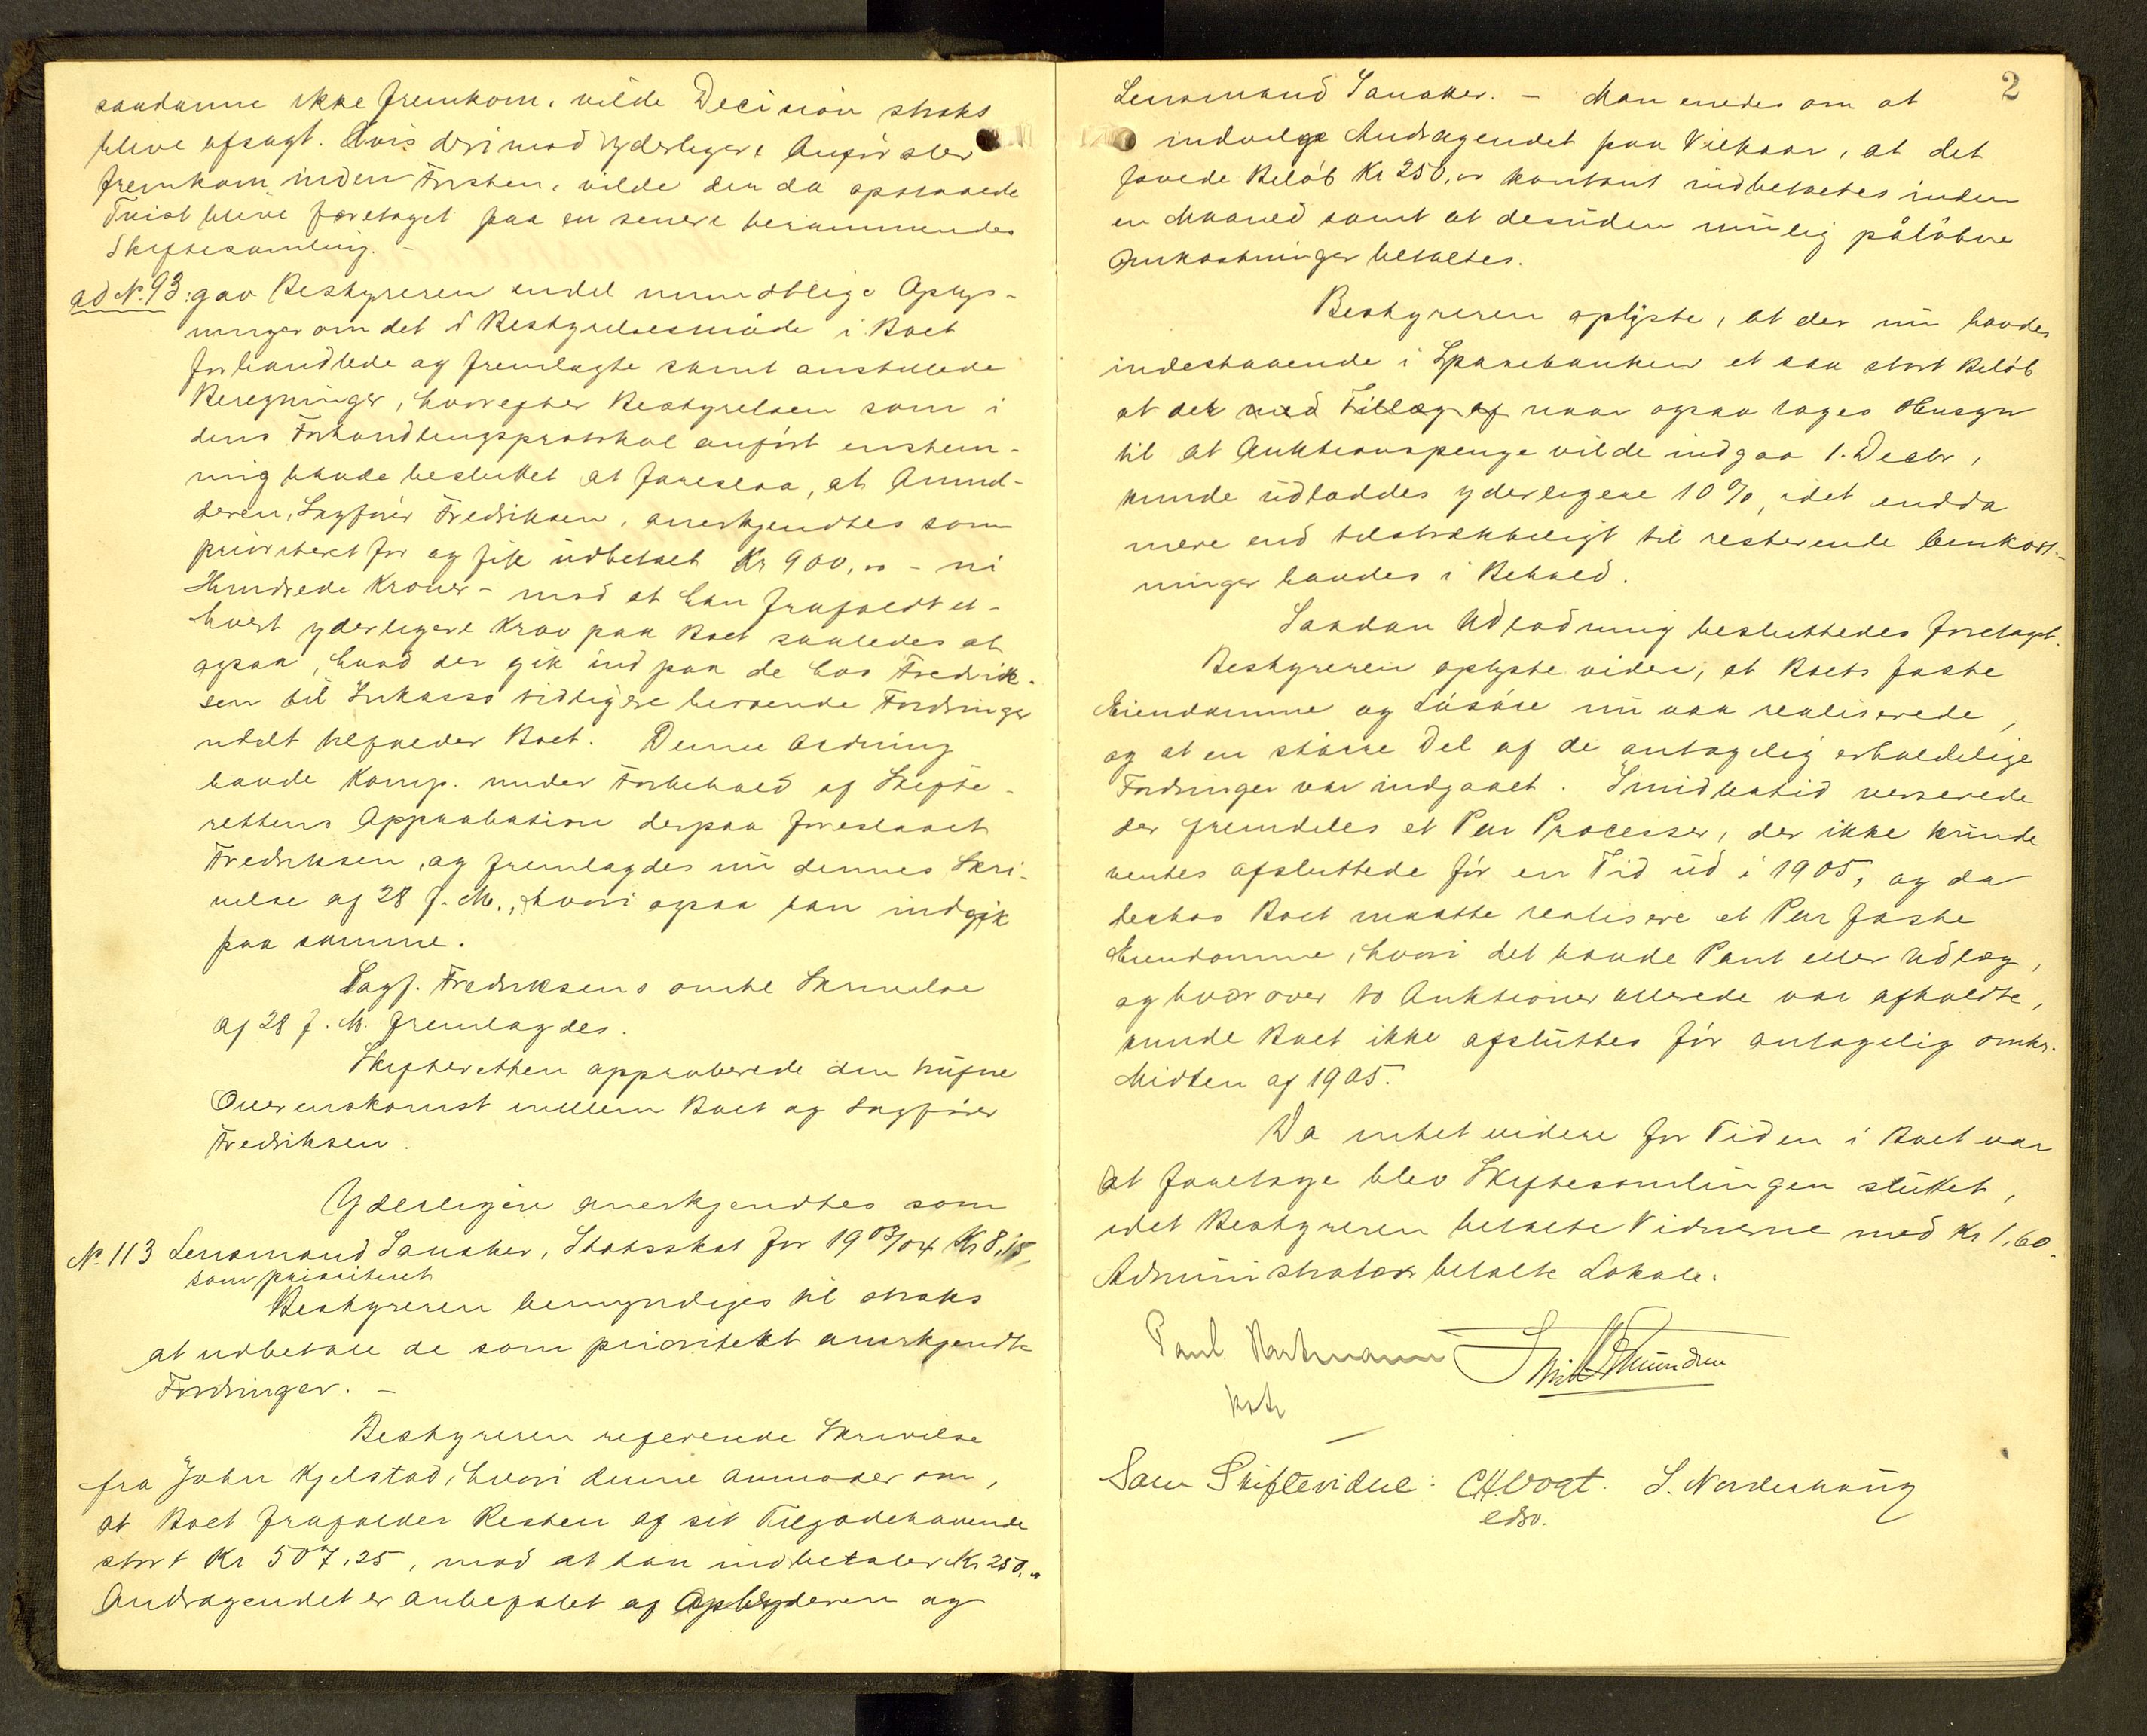 saadanne ikke fremkom, vilde Decision straks
blive afsagt. Hvis derimod yderligere Anførsler
fremkom inden Fristen, vilde den da opstaaede
Tvist blive foretaget paa en senere berammendes
Skiftesamling. –
ad No. 93: gav Bestyreren endel mundtlige Oplys-
ninger om det i Bestyrelsesmøde i Boet
forhandlede og fremlagte samt anstillede
Beregninger, hvorefter Bestyrelsen som i
dens Forhandlingsprotokol anført enstem-
mig havde besluttet at foreslaa, at Anmel-
deren, Sagfører Fredriksen, anerkjendtes som
prioriteret for og fik udbetalt Kr 900,00 – ni
Hundrede Kroner – mod at han frafaldt et-
hvert yderligere Krav paa Boet saaledes at
ogsaa, hvad der gik ind paa de hos Fredrik-
sen til Inkasso tidligere beroende Fordringer
udelt tilfalder Boet. Denne Ordning
havde Komp. under Forbehold af Skifte-
rettens Approbation derpaa foreslaaet
Fredriksen, og fremlagdes nu dennes Skri-
velse af 28 f. M., hvori ogsaa han indgik
paa samme.
Sagf. Fredriksens omhl Skrivelse
af 28 f. M. fremlagdes.
Skifteretten approberede den trufne
Overenskomst mellem Boet og Sagfører
Fredriksen.
Yderligere anerkjendtes som
No. 113 Lensmand Sanaker, Statsskat for 1903/04 Kr 8,15,
som prioriteret
Bestyreren bemyndiges til straks
at udbetale de som prioritert anerkjendte
Fordringer. –
Bestyreren refererede Skrivelse
fra John Kjelstad, hvori denne anmoder om,
at Boet frafalder Resten af sit Tilgodehavende
stort Kr 507,25, mod at han indbetaler Kr 250,00
Andragendet er anbefalet af Opbyderen og
2
Lensmand Sanaker. – Man enedes om at
indvilge Andragendet paa Vilkaar, at det
lovede Beløb Kr 250,00 kontant indbetaltes inden
en Maaned samt at desuden mulig påløbne
Omkostninger betaltes.
Bestyreren oplyste, at der nu havdes
indestaaende i Sparebanken et saa stort Beløb
at der med Tillæg af naar ogsaa toges Hensyn
til at Auktionspenge vilde indgaa 1. Decbr,
kunde udloddes yderligere 10%, idet endda
mere end tilstrækkeligt til resterende Omkost-
ninger havdes i Behold.
Saadan Udlodning besluttedes foretaget.
Bestyreren oplyste videre, at Boets faste
Eiendomme og Løsøre nu var realiserede,
og at en større Del af de antagelig erholdelige
Fordringer var indgaaet. Imidlertid verserede
der fremdeles et Par Processer, der ikke kunde
ventes afsluttede før en Tid ud i 1905, og da
deshos Boet maatte realisere et Par faste
Eiendomme, hvori det havde Pant eller Udlæg,
og hvorover to Auktioner allerede var afholdte,
kunde Boet ikke afsluttes før antagelig omkr.
Midten af 1905.
Da intet videre for Tiden i Boet var
at foretage blev Skiftesamlingen sluttet,
idet Bestyreren betalte Vidnerne med Kr 1,60.
Administrator betalte Lokale.
Paul Hartmann
kst
Som Skiftevidne: CHVogt. S. Nordeshaug
edsv.